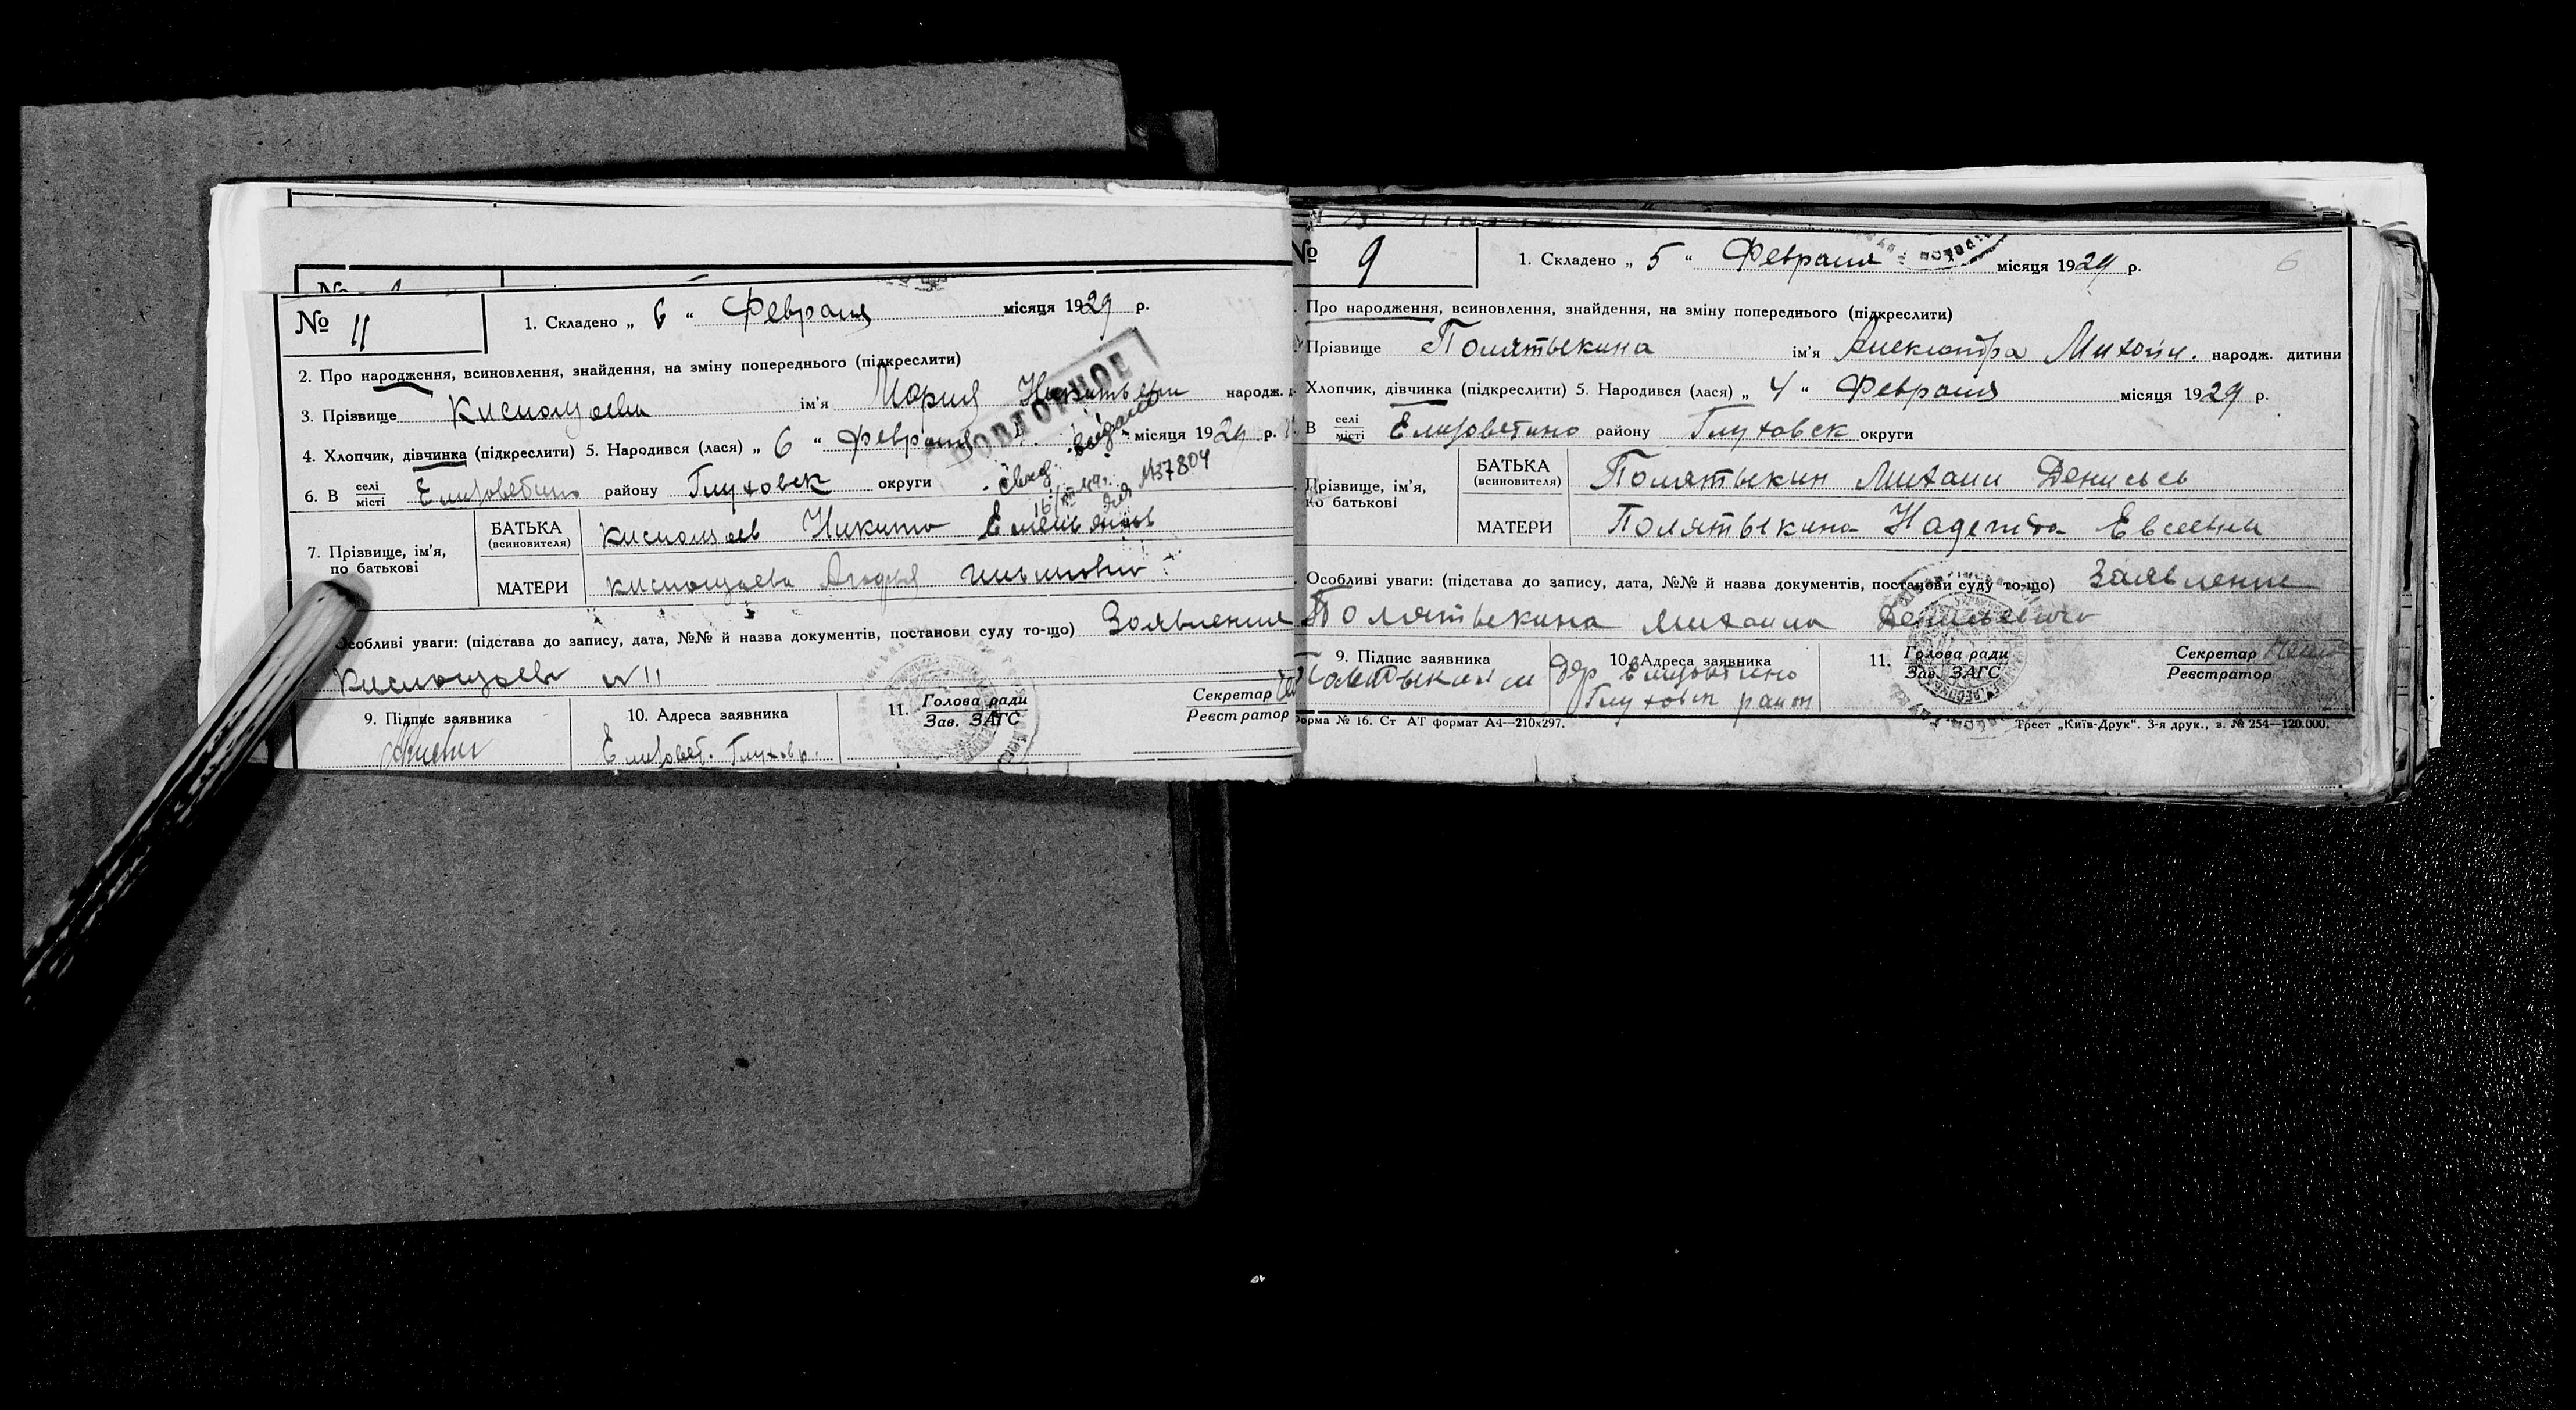 № 11
1. Складено „ 6 “ Февраля місяця 1929 р.
2. Про народження, всиновлення, знайдення, на зміну попереднього (підкреслити)
3. Прізвище Кислощаева ім'я Мария Никитьевн народж.
ПОВТОРНОЕ
4. Хлопчик, дівчинка (підкреслити) 5. Народився (лася) „ 6 “ Февраля місяця 1929 р.
Свид. выдано
16/XII 49г. № 37804
6. В селі місті Елизоветино району Глуховск округи
7. Прізвище, ім'я, по батькові
БАТЬКА (всиновителя) Кислощаев Никита Емельянов
МАТЕРИ Кислощаева Агафья Ильиновна
Особливі уваги: (підстава до запису, дата, №№ й назва документів, постанови суду то-що) Заявление
Кислощаева № 11
9. Підпис заявника
10. Адреса заявника
Елизовет. Глухов р.
11. Голова ради
Зав. ЗАГС
Секретар
Реєстратор
№ 9
1. Складено „ 5 “ Февраля місяця 1929 р.
6
Про народження, всиновлення, знайдення, на зміну попереднього (підкреслити)
Прізвище Полятыкина ім'я Александра Михайл. народж. дитини
Хлопчик, дівчинка (підкреслити) 5. Народився (лася) „ 4 “ Февраля місяця 1929 р.
В селі місті Елизоветино району Глуховск округи
Прізвище, ім'я, по батькові
БАТЬКА (всиновителя) Полятыкин Михаил Денисьев
МАТЕРИ Полятыкина Надежда Евсеевна
Особливі уваги: (підстава до запису, дата, №№ й назва документів, постанови суду то-що) Заявление
Полятыкина Михаила Денисьевича
9. Підпис заявника
10. Адреса заявника
дер Елизоветино
Глуховск район
11. Голова ради
Зав. ЗАГС
Секретар
Реєстратор
Форма № 16. Ст АТ формат А4—210х297.
Трест „Київ-Друк“. 3-я друк., з. № 254—120.000.